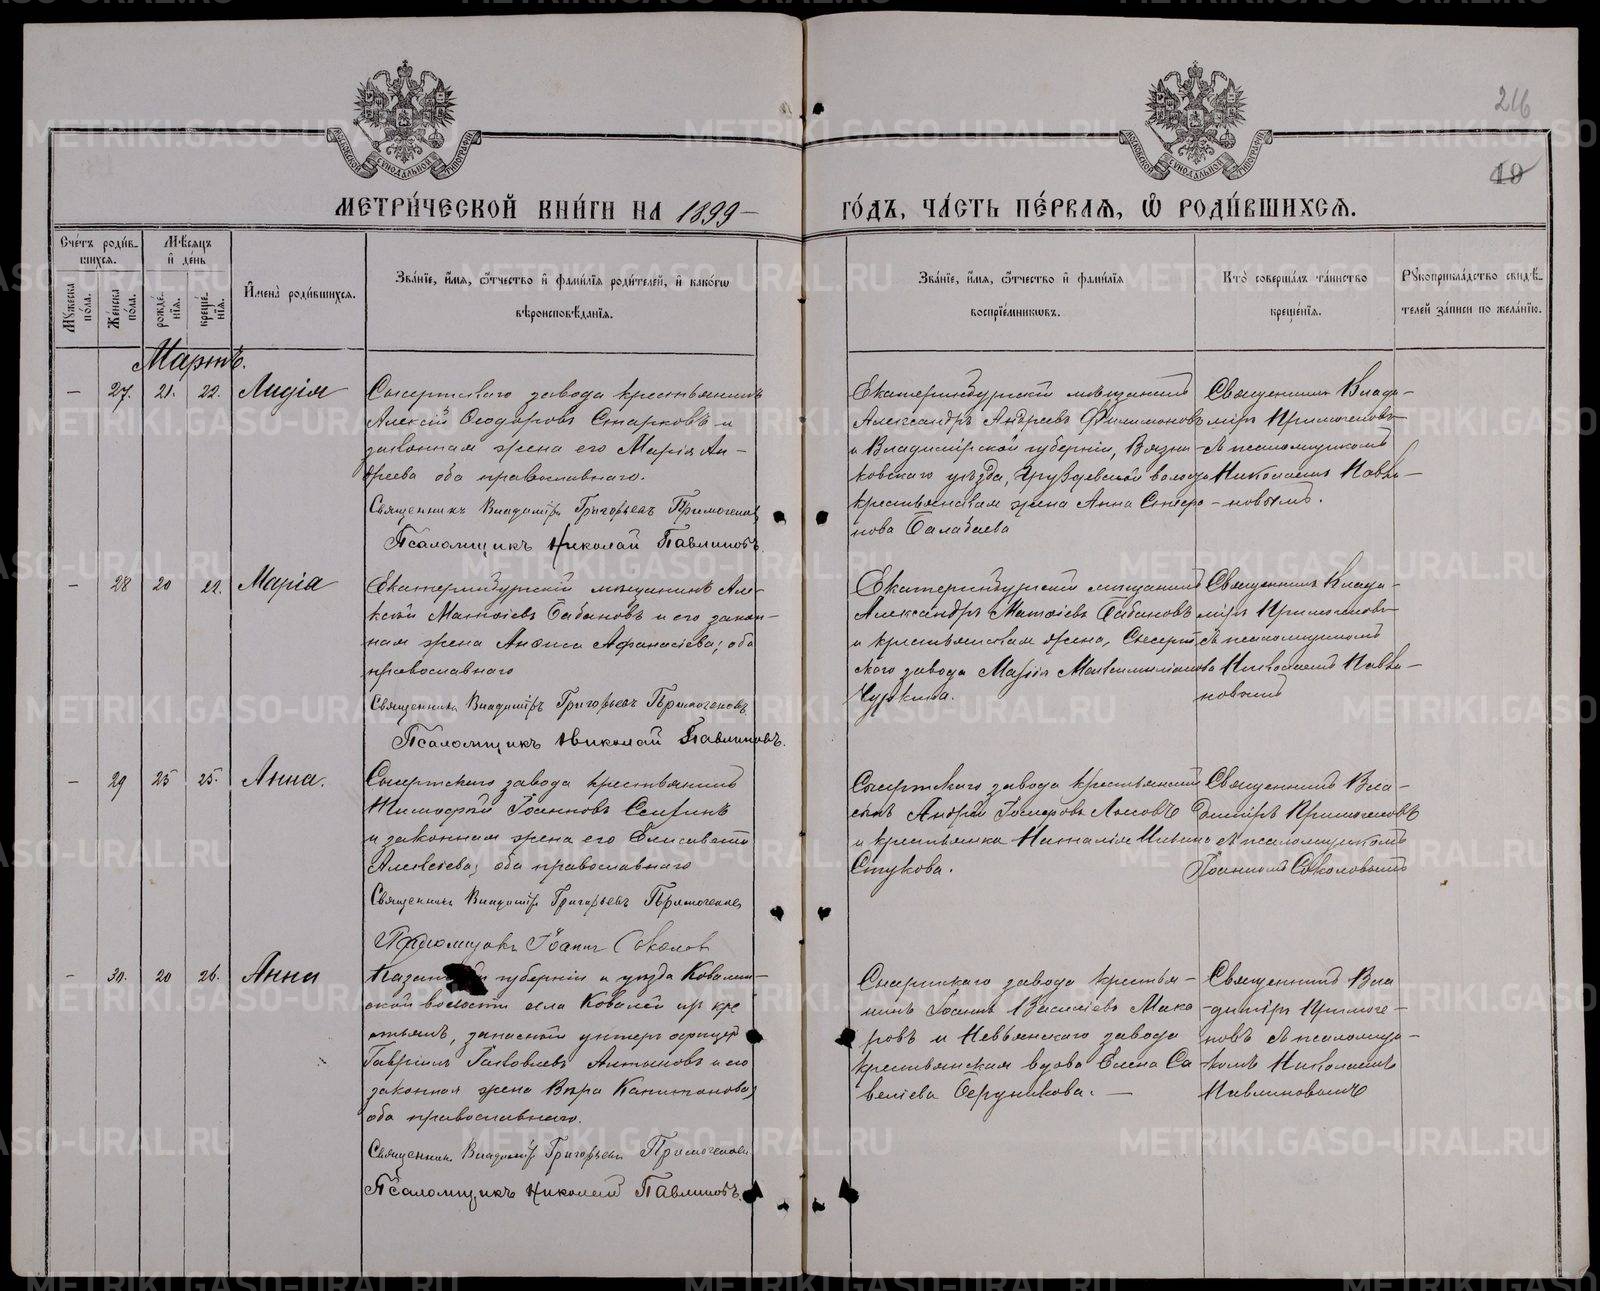 216
10
МОСКОВСКОЙ СУНОДАЛЬНОЙ ТИПОГРАФІИ
МОСКОВСКОЙ СУНОДАЛЬНОЙ ТИПОГРАФІИ
МЕТРИ́ЧЕСКОЙ КНИ́ГИ НА 1899
ГО́ДЪ, ЧА́СТЬ ПЕ́РВАѦ, Ѡ РОДИ́ВШИХСѦ.
Сче́тъ роди́в-
шихсѧ.
Мѣ́сѧцъ
и де́нь
Мꙋ́жеска по́ла.
Же́нска по́ла.
рожде́нїѧ.
креще́нїѧ.
И҆мена̀ роди́вшихсѧ.
Зва́нїе, и҆́мѧ, ѻ҆́тчество и҆ фами́лїѧ роди́телей, и҆ како́гѡ
вѣроисповѣ́данїѧ.
Зва́нїе, и҆́мѧ, ѻ҆́тчество и҆ фами́лїѧ
воспрїе́мникѡвъ.
Кто̀ соверша́лъ та́инство
креще́нїѧ.
Рꙋкоприкла́дство свидѣ́-
телей за́писи по жела́нїю.
Мартъ.
– 27. 21. 22. Лидія
Сысертскаго завода крестьянинъ
Алексій Ѳеодоровъ Старковъ и
законная жена его Марія Ан-
дреева оба православнаго.
Священникъ Владиміръ Григорьевъ Примогеновъ
Псаломщикъ Николай Павлиновъ.
Екатеринбургскій мѣщанинъ
Александръ Андреевъ Филимоновъ
и Владимірской губерніи, Вязни-
ковскаго уѣзда, Груздевской волости
крестьянская жена Анна Степа-
нова Балабаева
Священникъ Влади-
міръ Примогеновъ
съ псаломщикомъ
Николаемъ Павли-
новымъ.
– 28 20 22. Марія
Екатеринбургскій мѣщанинъ Але-
ксѣй Матѳіевъ Бабановъ и его закон-
ная жена Анѳиса Аѳанасіева; оба
православнаго
Священникъ Владиміръ Григорьевъ Примогеновъ
Псаломщикъ Николай Павлиновъ.
Екатеринбургскій мѣщанинъ
Александръ Матѳіевъ Бабановъ
и крестьянская жена, Сысерт-
скаго завода Марія Максимиліанова
Чуркина.
Священникъ Влади-
міръ Примогеновъ
съ псаломщикомъ
Николаемъ Павли-
новымъ
– 29 25 25. Анна.
Сысертскаго завода крестьянинъ
Тимоѳей Іоанновъ
и законная жена его Елисавета
Алексіева; оба православнаго
Священникъ Владиміръ Григорьевъ Примогеновъ
Псаломщикъ Іоаннъ Соколовъ
Сысертскаго завода крестьянскій
сынъ Андрей
и крестьянка Наталія
Стукова.
Священникъ Вла-
диміръ Примогеновъ
съ псаломщикомъ
Іоанномъ Соколовымъ
– 30. 20 26. Анна
губерніи и уѣзда Ковалин-
ской волости села Ковалей изъ кре-
стьянъ, запасный унтеръ офицеръ
Гавріилъ Іаковлевъ Антоновъ и его
законная жена Вѣра Капитонова;
оба православнаго.
Священникъ Владиміръ Григорьевъ Примогеновъ
Псаломщикъ Николай Павлиновъ.
Сысертскаго завода крестья-
нинъ Іоаннъ Василіевъ Мака-
ровъ и Невьянскаго завода
крестьянская вдова Елена Са-
веліева Бердникова. –
Священникъ Вла-
диміръ Примоге-
новъ съ псаломщи-
комъ Николаемъ
Павлиновымъ
METRIKI.GASO-URAL.RU